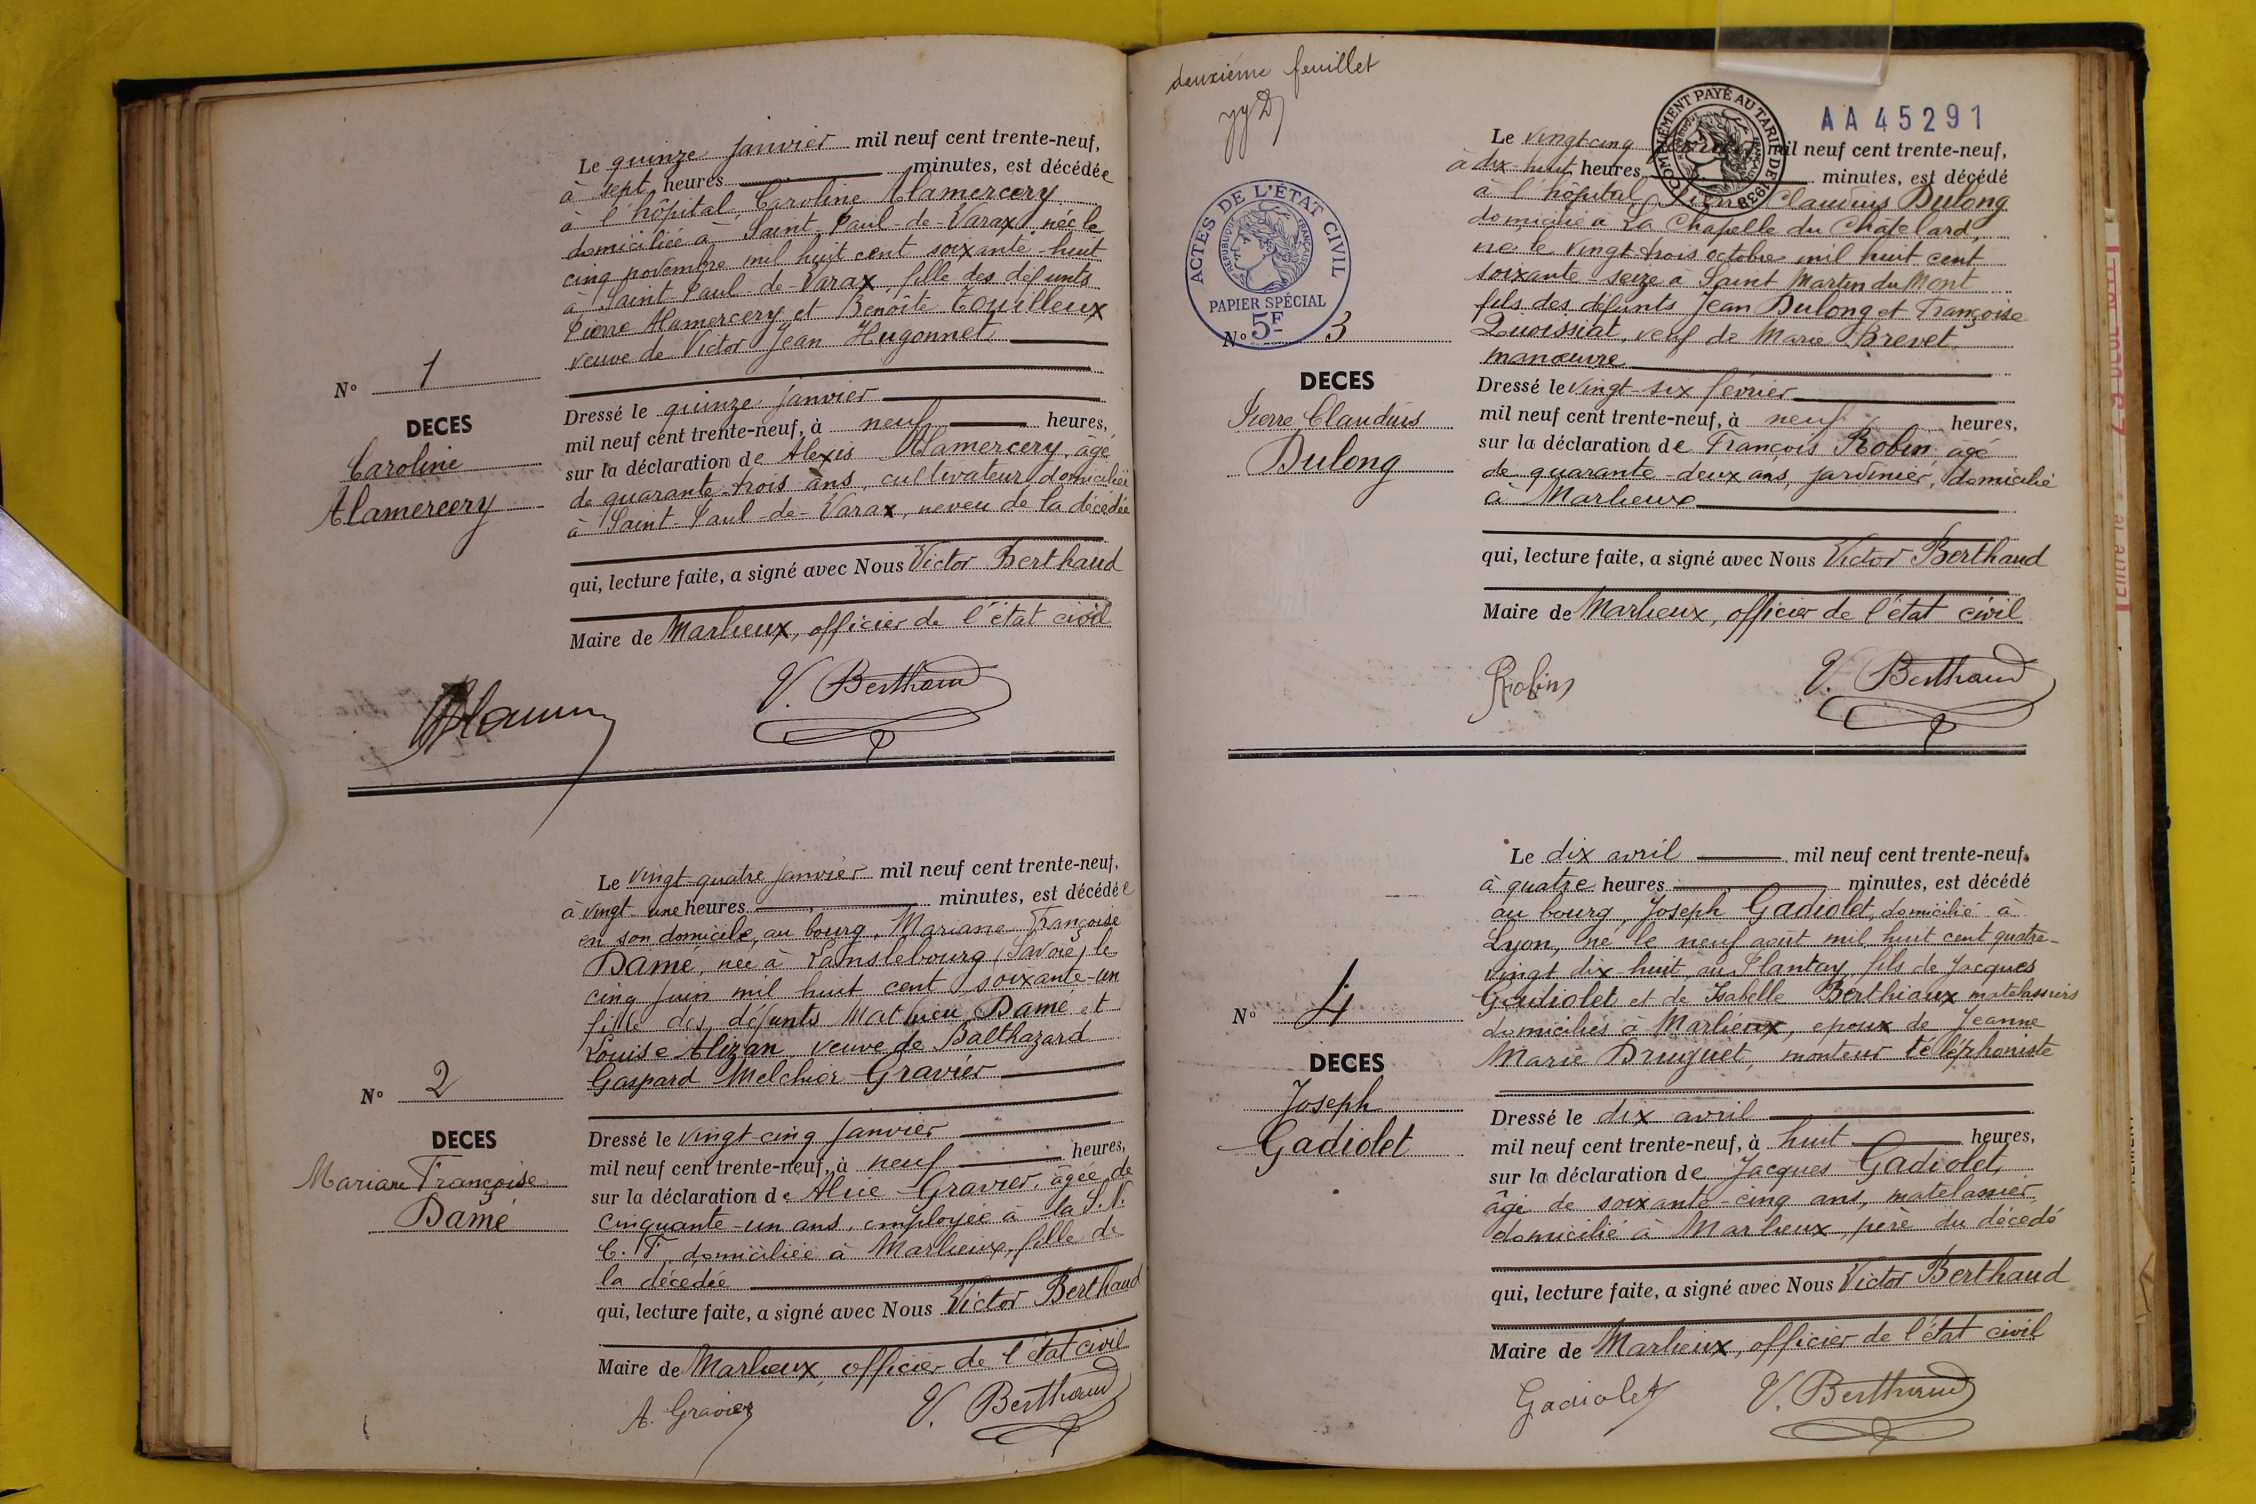 Le quinze janvier mil neuf cent trente-neuf,
à sept heures minutes, est décédée
à l'hôpital, Caroline Alamercery
domiciliée à Saint-Paul-de-Varax, née le
cinq novembre mil huit cent soixante-huit
à Saint-Paul-de-Varax, fille des défunts
Pierre Alamercery et Benoîte
veuve de Victor Jean Hugonnet,
N° 1
DECES
Caroline
Alamercery
Dressé le quinze janvier
mil neuf cent trente-neuf, à neuf heures,
sur la déclaration de Alexis Alamercery, âgé
de quarante-trois ans, cultivateur, domicilié
à Saint-Paul-de-Varax, neveu de la décédée
qui, lecture faite, a signé avec Nous Victor Berthaud
Maire de Marlieux, officier de l'état civil
V. Berthaud
Le vingt-quatre janvier mil neuf cent trente-neuf,
à vingt une heures minutes, est décédée
en son domicile, au bourg, Mariane Françoise
Damé, née à Lanslebourg (Savoie) le
cinq juin mil huit cent soixante-un
fille des défunts Mathieu Damé et
Louise Alizan, veuve de Balthazard
Gaspard Melchior Gravier
N° 2
DECES
Mariane Françoise
Damé
Dressé le vingt-cinq janvier
mil neuf cent trente-neuf, à neuf heures,
sur la déclaration de Alice Gravier, âgée de
cinquante-un ans, employée à la S.N.
C.F. domiciliée à Marlieux, fille de
la décédée
qui, lecture faite, a signé avec Nous Victor Berthaud
Maire de Marlieux, officier de l'état civil
A. Gravier V. Berthaud
deuxième feuillet
COMPLÉMENT PAYÉ AU TARIF DE 1938
AA45291
ACTES DE L'ÉTAT CIVIL
RÉPUBLIQUE FRANÇAISE
PAPIER SPÉCIAL
5F
Le vingt-cinq mil neuf cent trente-neuf,
à dix-huit heures minutes, est décédé
à l'hôpital, Claudius Dulong
domicilié à La Chapelle du Chatelard,
né le vingt-trois octobre mil huit cent
soixante-seize à Saint Martin du Mont
fils des défunts Jean Dulong et Françoise
Quoisnat, veuf de Marie Brevet
manœuvre
N° 3
DECES
Pierre Claudius
Dulong
Dressé le vingt-six février
mil neuf cent trente-neuf, à neuf heures,
sur la déclaration de François Robin âgé
de quarante-deux ans, jardinier, domicilié
à Marlieux
qui, lecture faite, a signé avec Nous Victor Berthaud
Maire de Marlieux, officier de l'état civil
Robin V. Berthaud
Le dix avril mil neuf cent trente-neuf,
à quatre heures minutes, est décédé
au bourg, Joseph Gadiolet, domicilié à
Lyon, né le neuf août mil huit cent quatre-
vingt dix-huit, au Plantay, fils de Jacques
Gadiolet et de Isabelle Berthiaux matelassiers
domiciliés à Marlieux, époux de Jeanne
Marie Druguet, monteur téléphoniste
N° 4
DECES
Joseph
Gadiolet
Dressé le dix avril
mil neuf cent trente-neuf, à huit heures,
sur la déclaration de Jacques Gadiolet,
âgé de soixante-cinq ans, matelassier,
domicilié à Marlieux, père du décédé
qui, lecture faite, a signé avec Nous Victor Berthaud
Maire de Marlieux, officier de l'état civil
Gadiolet V. Berthaud